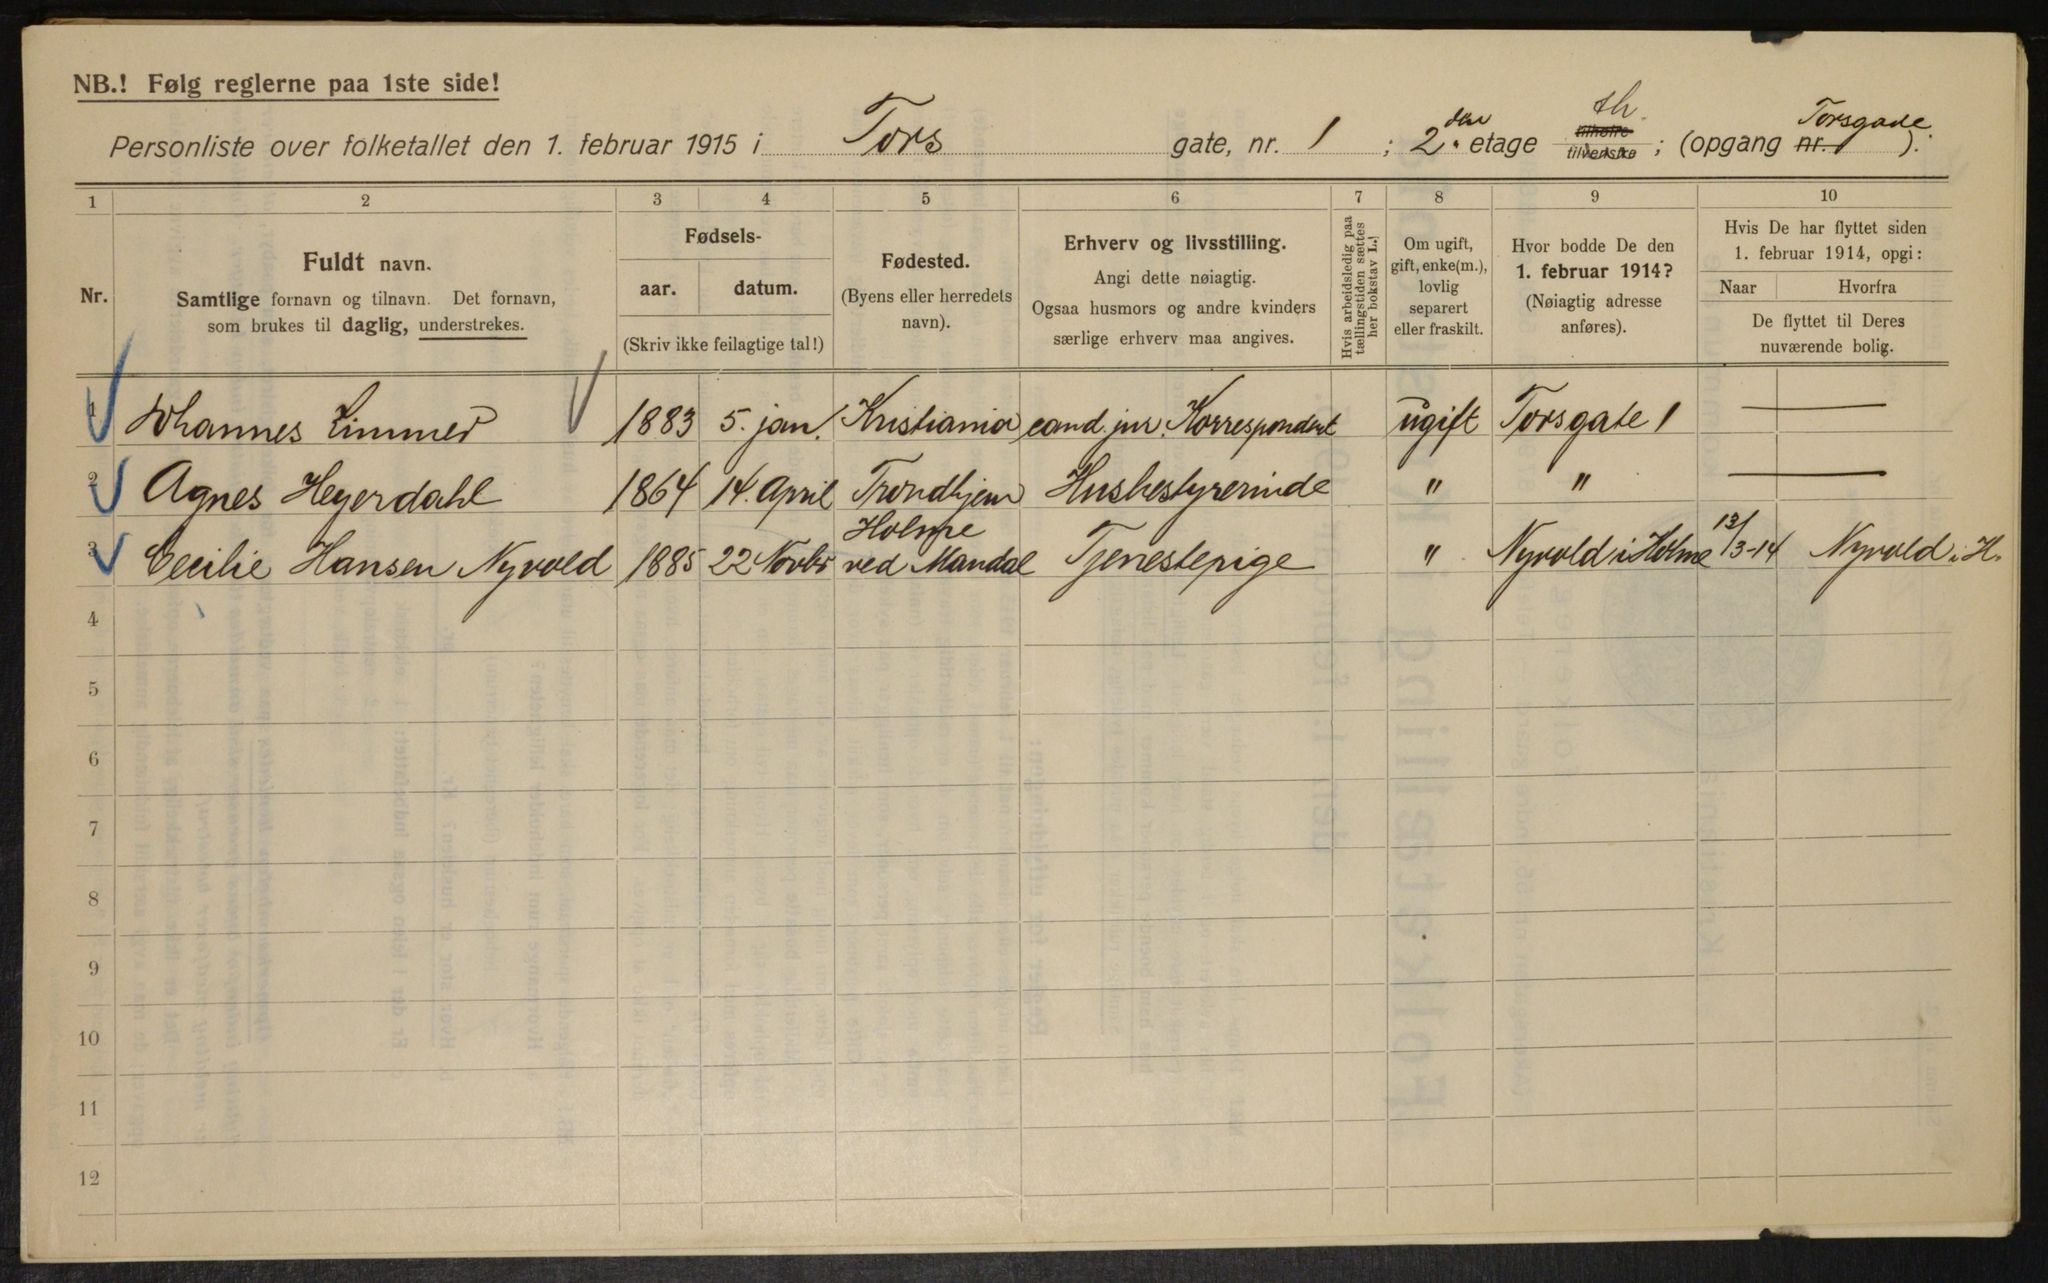 NB.! Følg reglerne paa 1ste side!
Personliste over folketallet den 1. februar 1915 i Tors gate, nr. 1 ; 2den etage tilhøire tilvenstre th. ; (opgang nr. Torsgade 1 ).
1 2 3 4 5 6 7 8 9 10
Nr.
Fuldt navn.
Samtlige fornavn og tilnavn. Det fornavn,
som brukes til daglig, understrekes.
Fødsels-
aar. datum.
(Skriv ikke feilagtige tal!)
Fødested.
(Byens eller herredets
navn).
Erhverv og livsstilling.
Angi dette nøiagtig.
Ogsaa husmors og andre kvinders
særlige erhverv maa angives.
Hvis arbeidsledig paa
tællingstiden sættes
her bokstav L.!
Om ugift,
gift, enke(m.),
lovlig
separert
eller fraskilt.
Hvor bodde De den
1. februar 1914?
(Nøiagtig adresse
anføres).
Hvis De har flyttet siden
1. februar 1914, opgi:
Naar Hvorfra
De flyttet til Deres
nuværende bolig.
1 Johannes Zimmer 1883 5. jan. Kristiania cand. jur. Korrespondent ugift Torsgate 1 —
2 Agnes Heyerdahl 1864 14. April Trondhjem Husbestyrerinde " " —
3 Cecilie Hansen Nyvold 1885 22 Novbr Holme ved Mandal Tjenestepige " Nyvold i Holme 13/3-14 Nyvold i H.
4
5
6
7
8
9
10
11
12